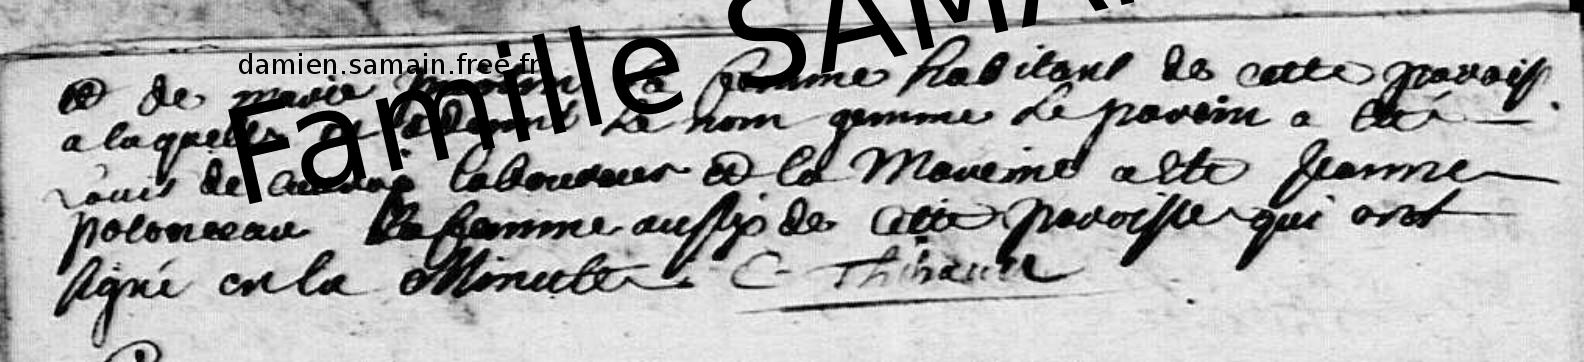 Famille SAMA
damien.samain.free.fr
et de marie la femme habitant de cette paroiss
a laquelle le nom gemme Le parein a ete
Louis de laboureur et la Mareine a ete Jeanne
polonceau sa femme aussy de cette paroisse qui ont
signé en la Minutte. C Thibault